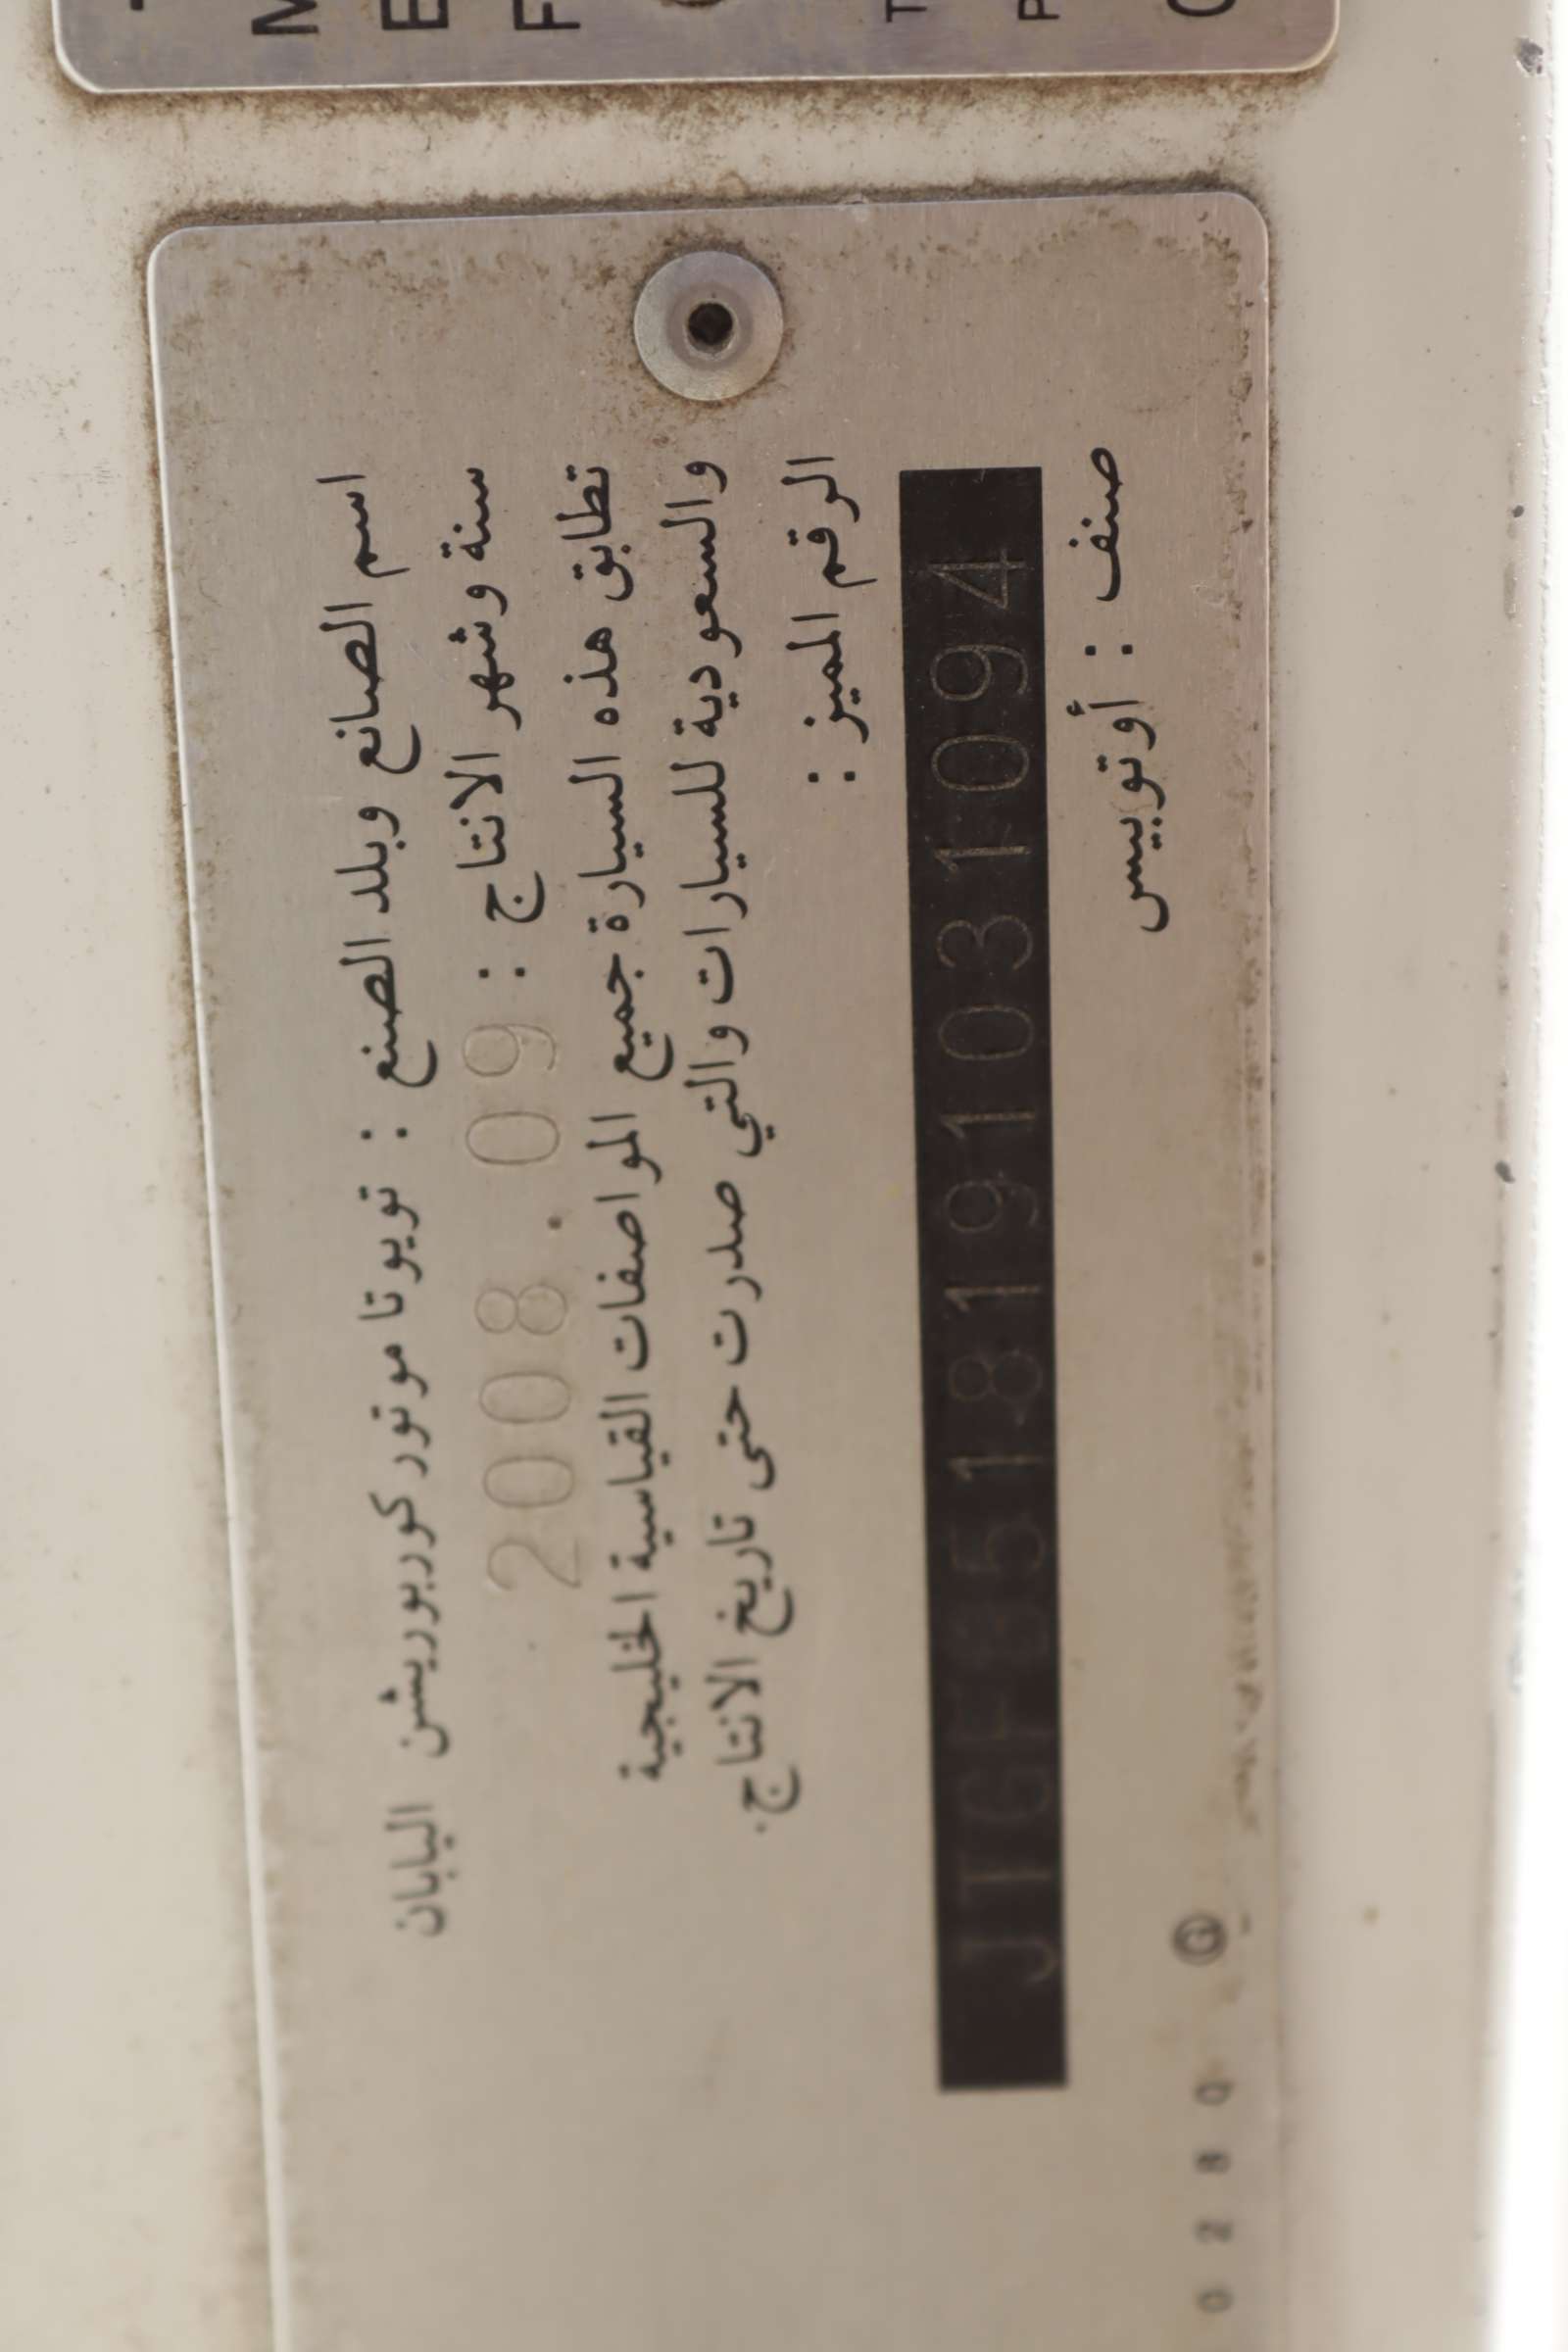 اسم الصانع وبلد الصنع : تويوتا موتور كوربوريشن اليابان
سنة وشهر الانتاج : 2008 . 09
تطابق هذه السيارة جميع المواصفات القياسية الخليجية
والسعودية للسيارات والتي صدرت حتى تاريخ الانتاج.
الرقم المميز :
JTGFB518191031094
صنف : أوتوبيس